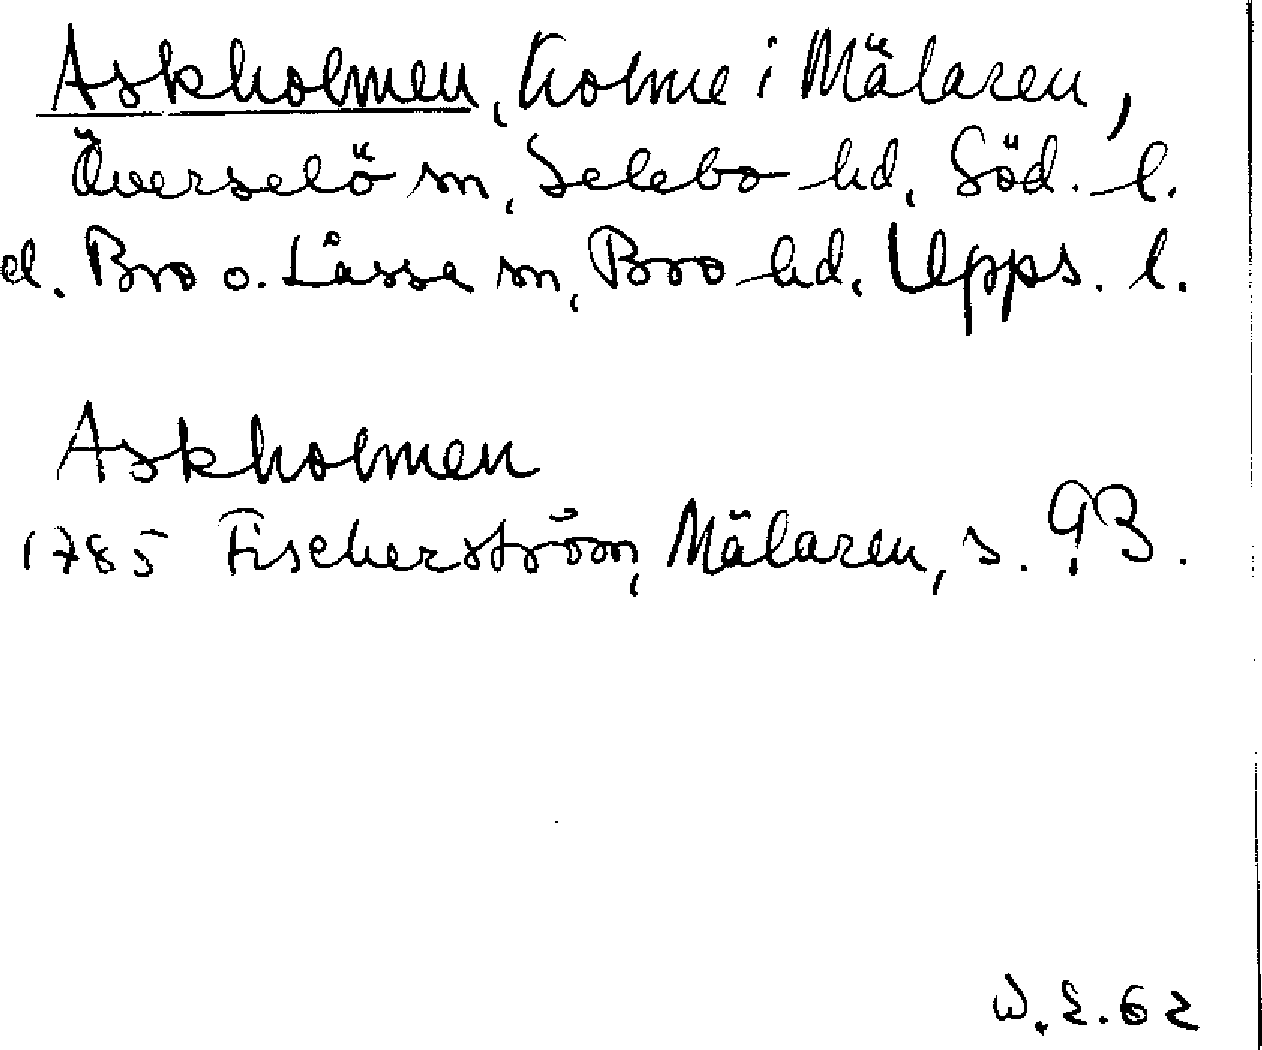 Askholmen, holme i Mälaren,
Överselö sn, Selebo hd, Söd. l.
el. Bro o. Låssa sn, Bro hd, Upps. l.
Askholmen
1785 Fischerström, Mälaren, s. 93.
W.E.62